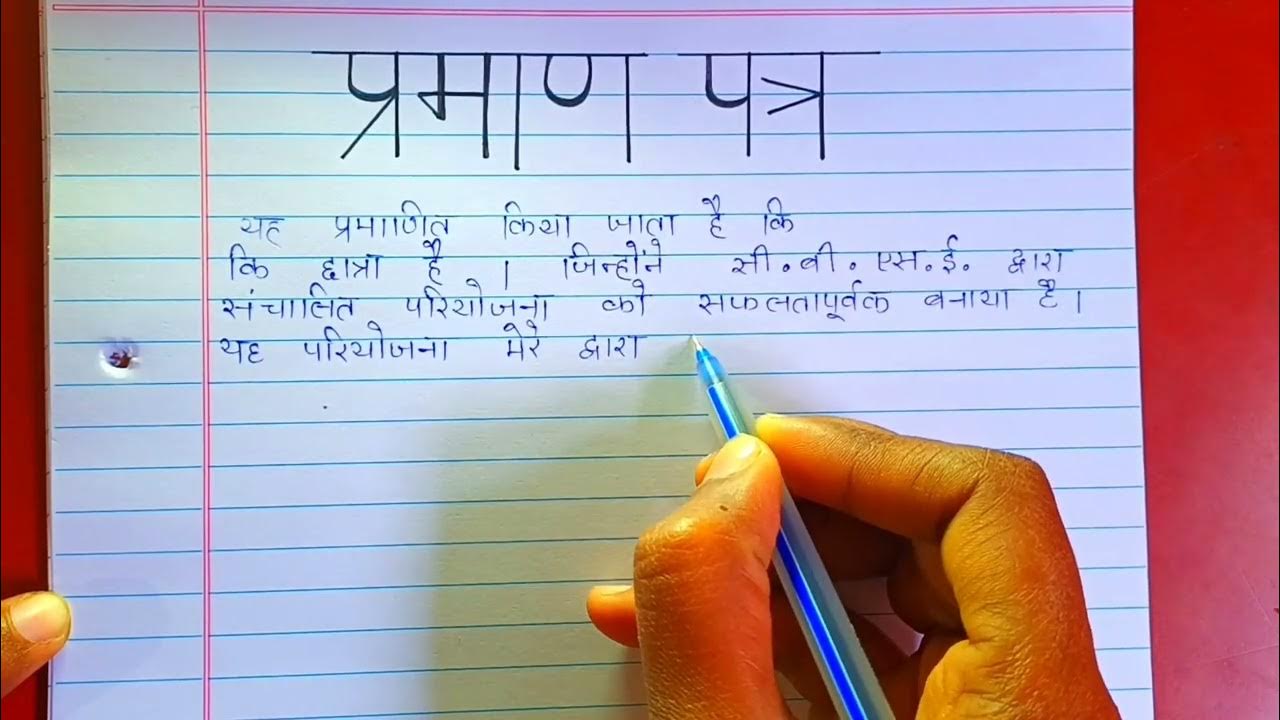 प्रमाण पत्र
यह प्रमाणित किया जाता है कि
कि छात्रा है । जिन्होंने सी.बी.एस.ई. द्वारा
संचालित परियोजना को सफलतापूर्वक बनाया है।
यह परियोजना मेरे द्वारा